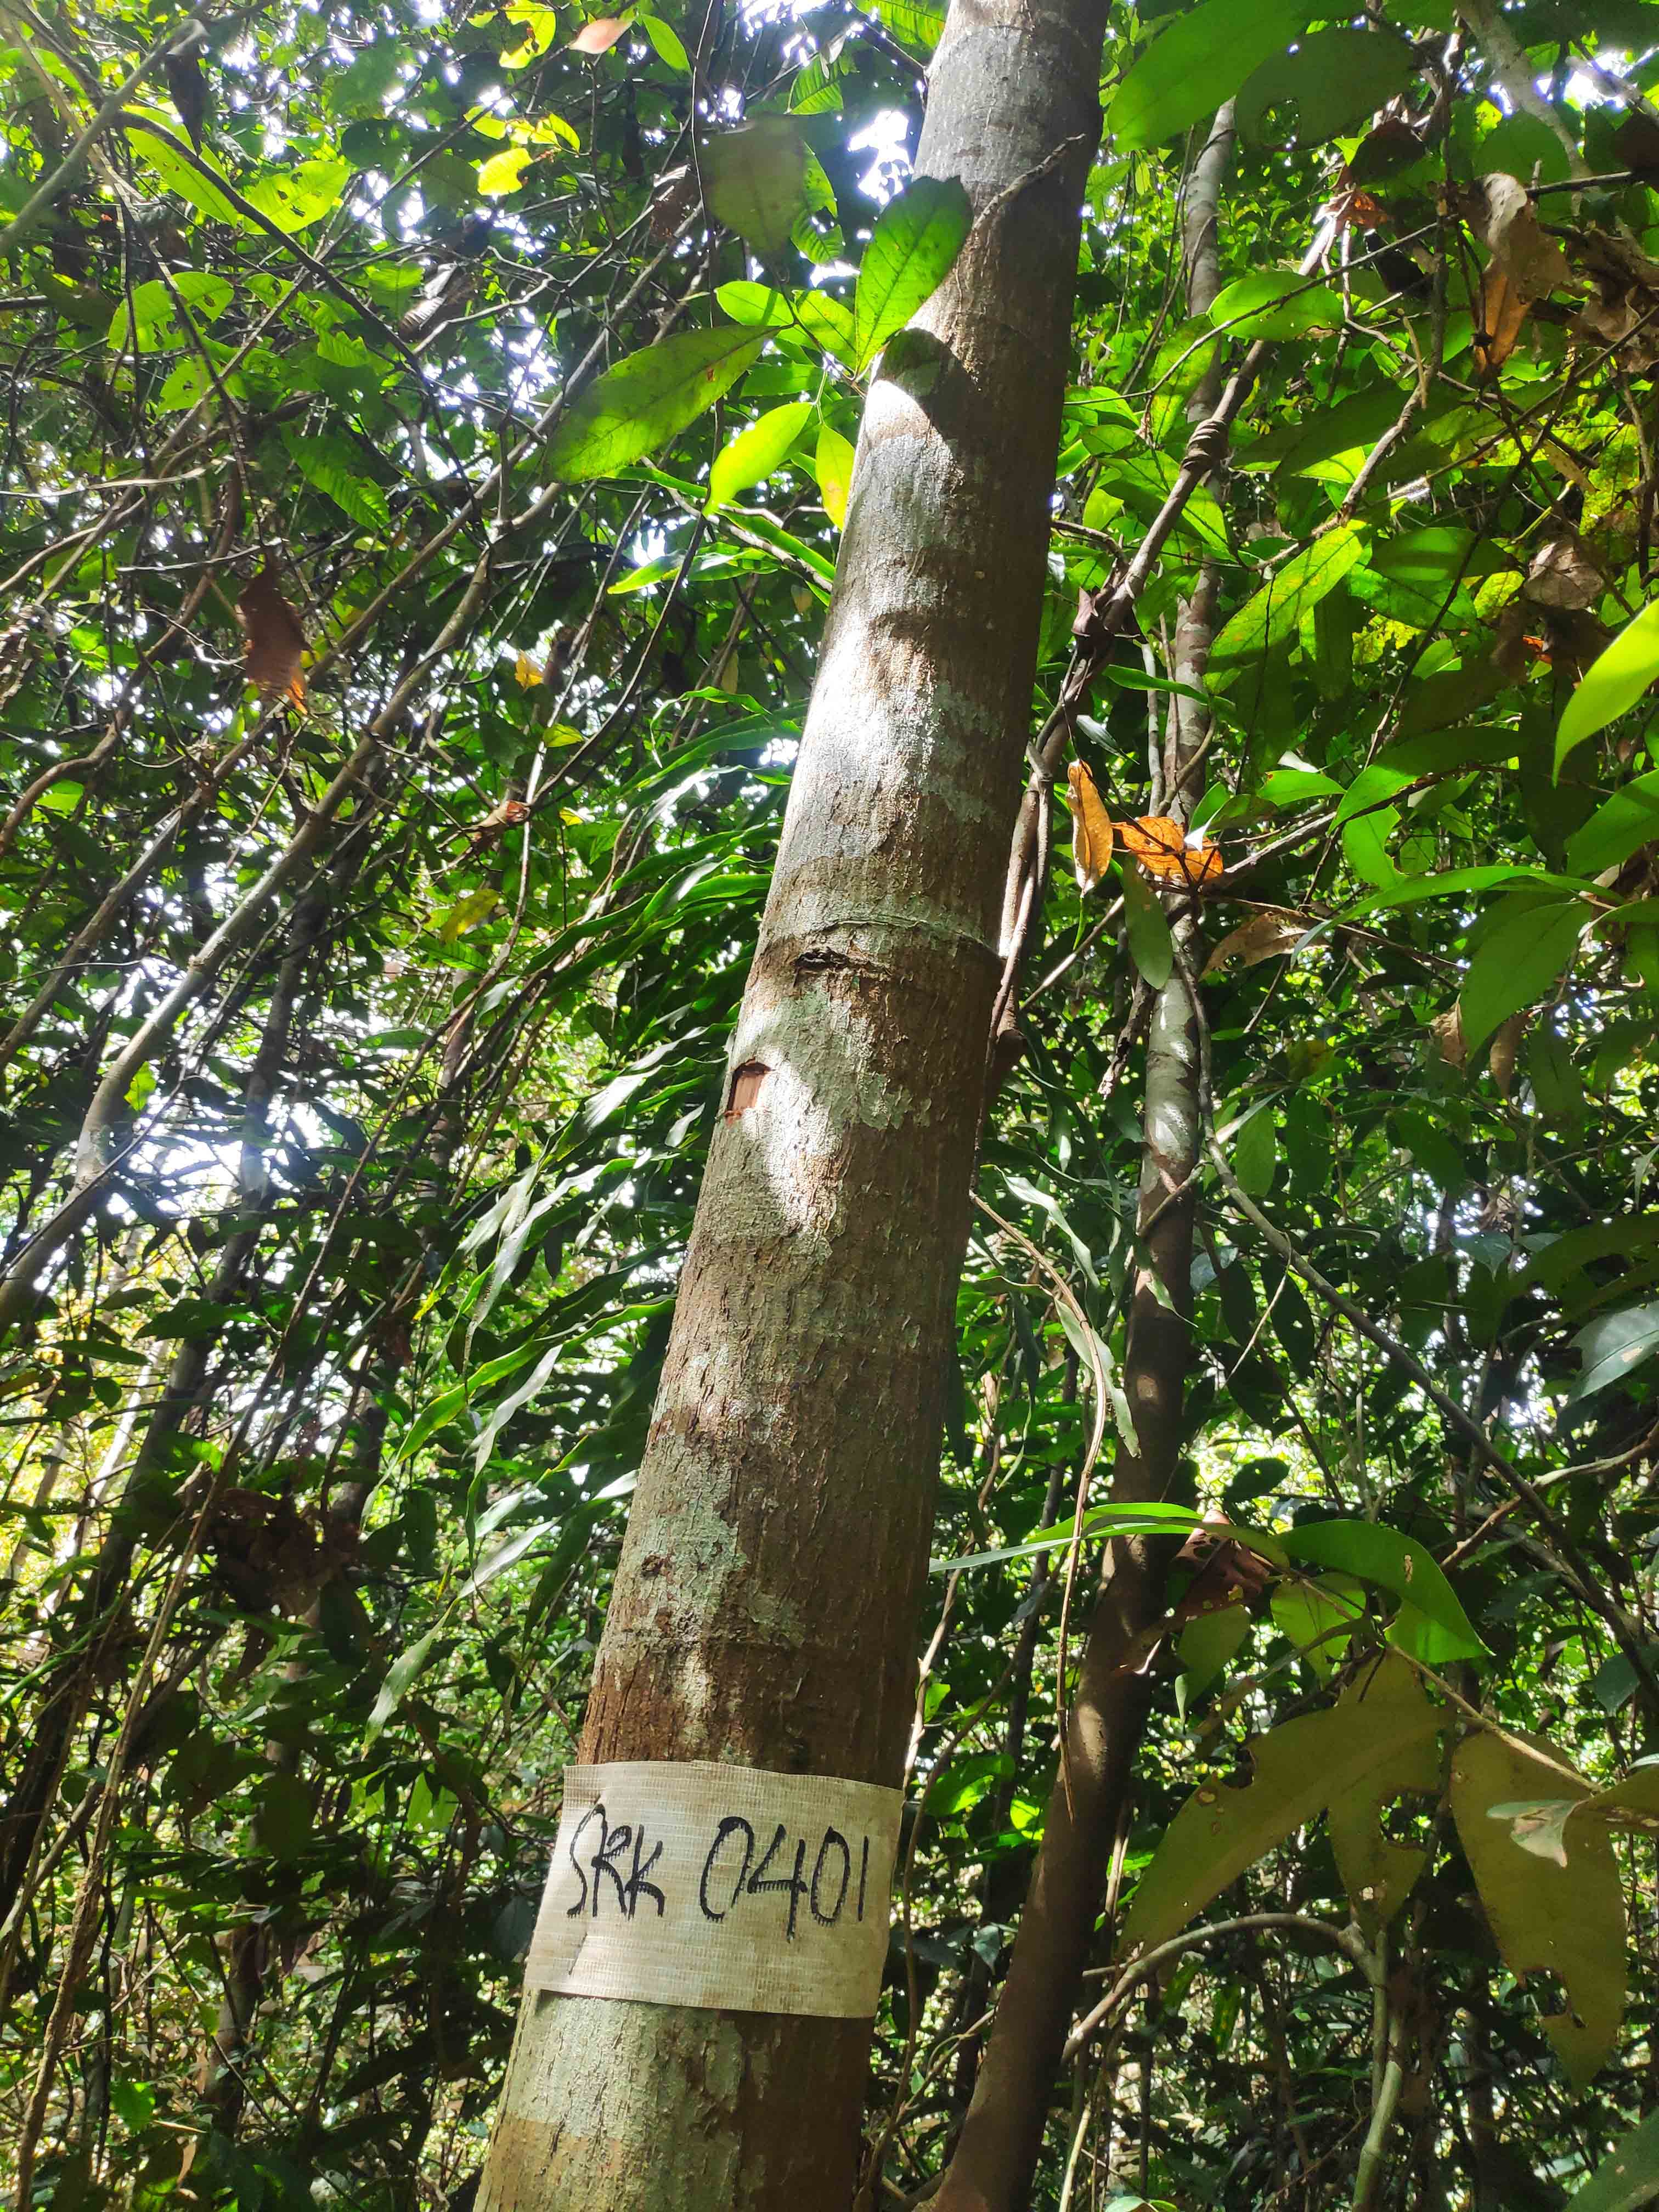 SRK 0401